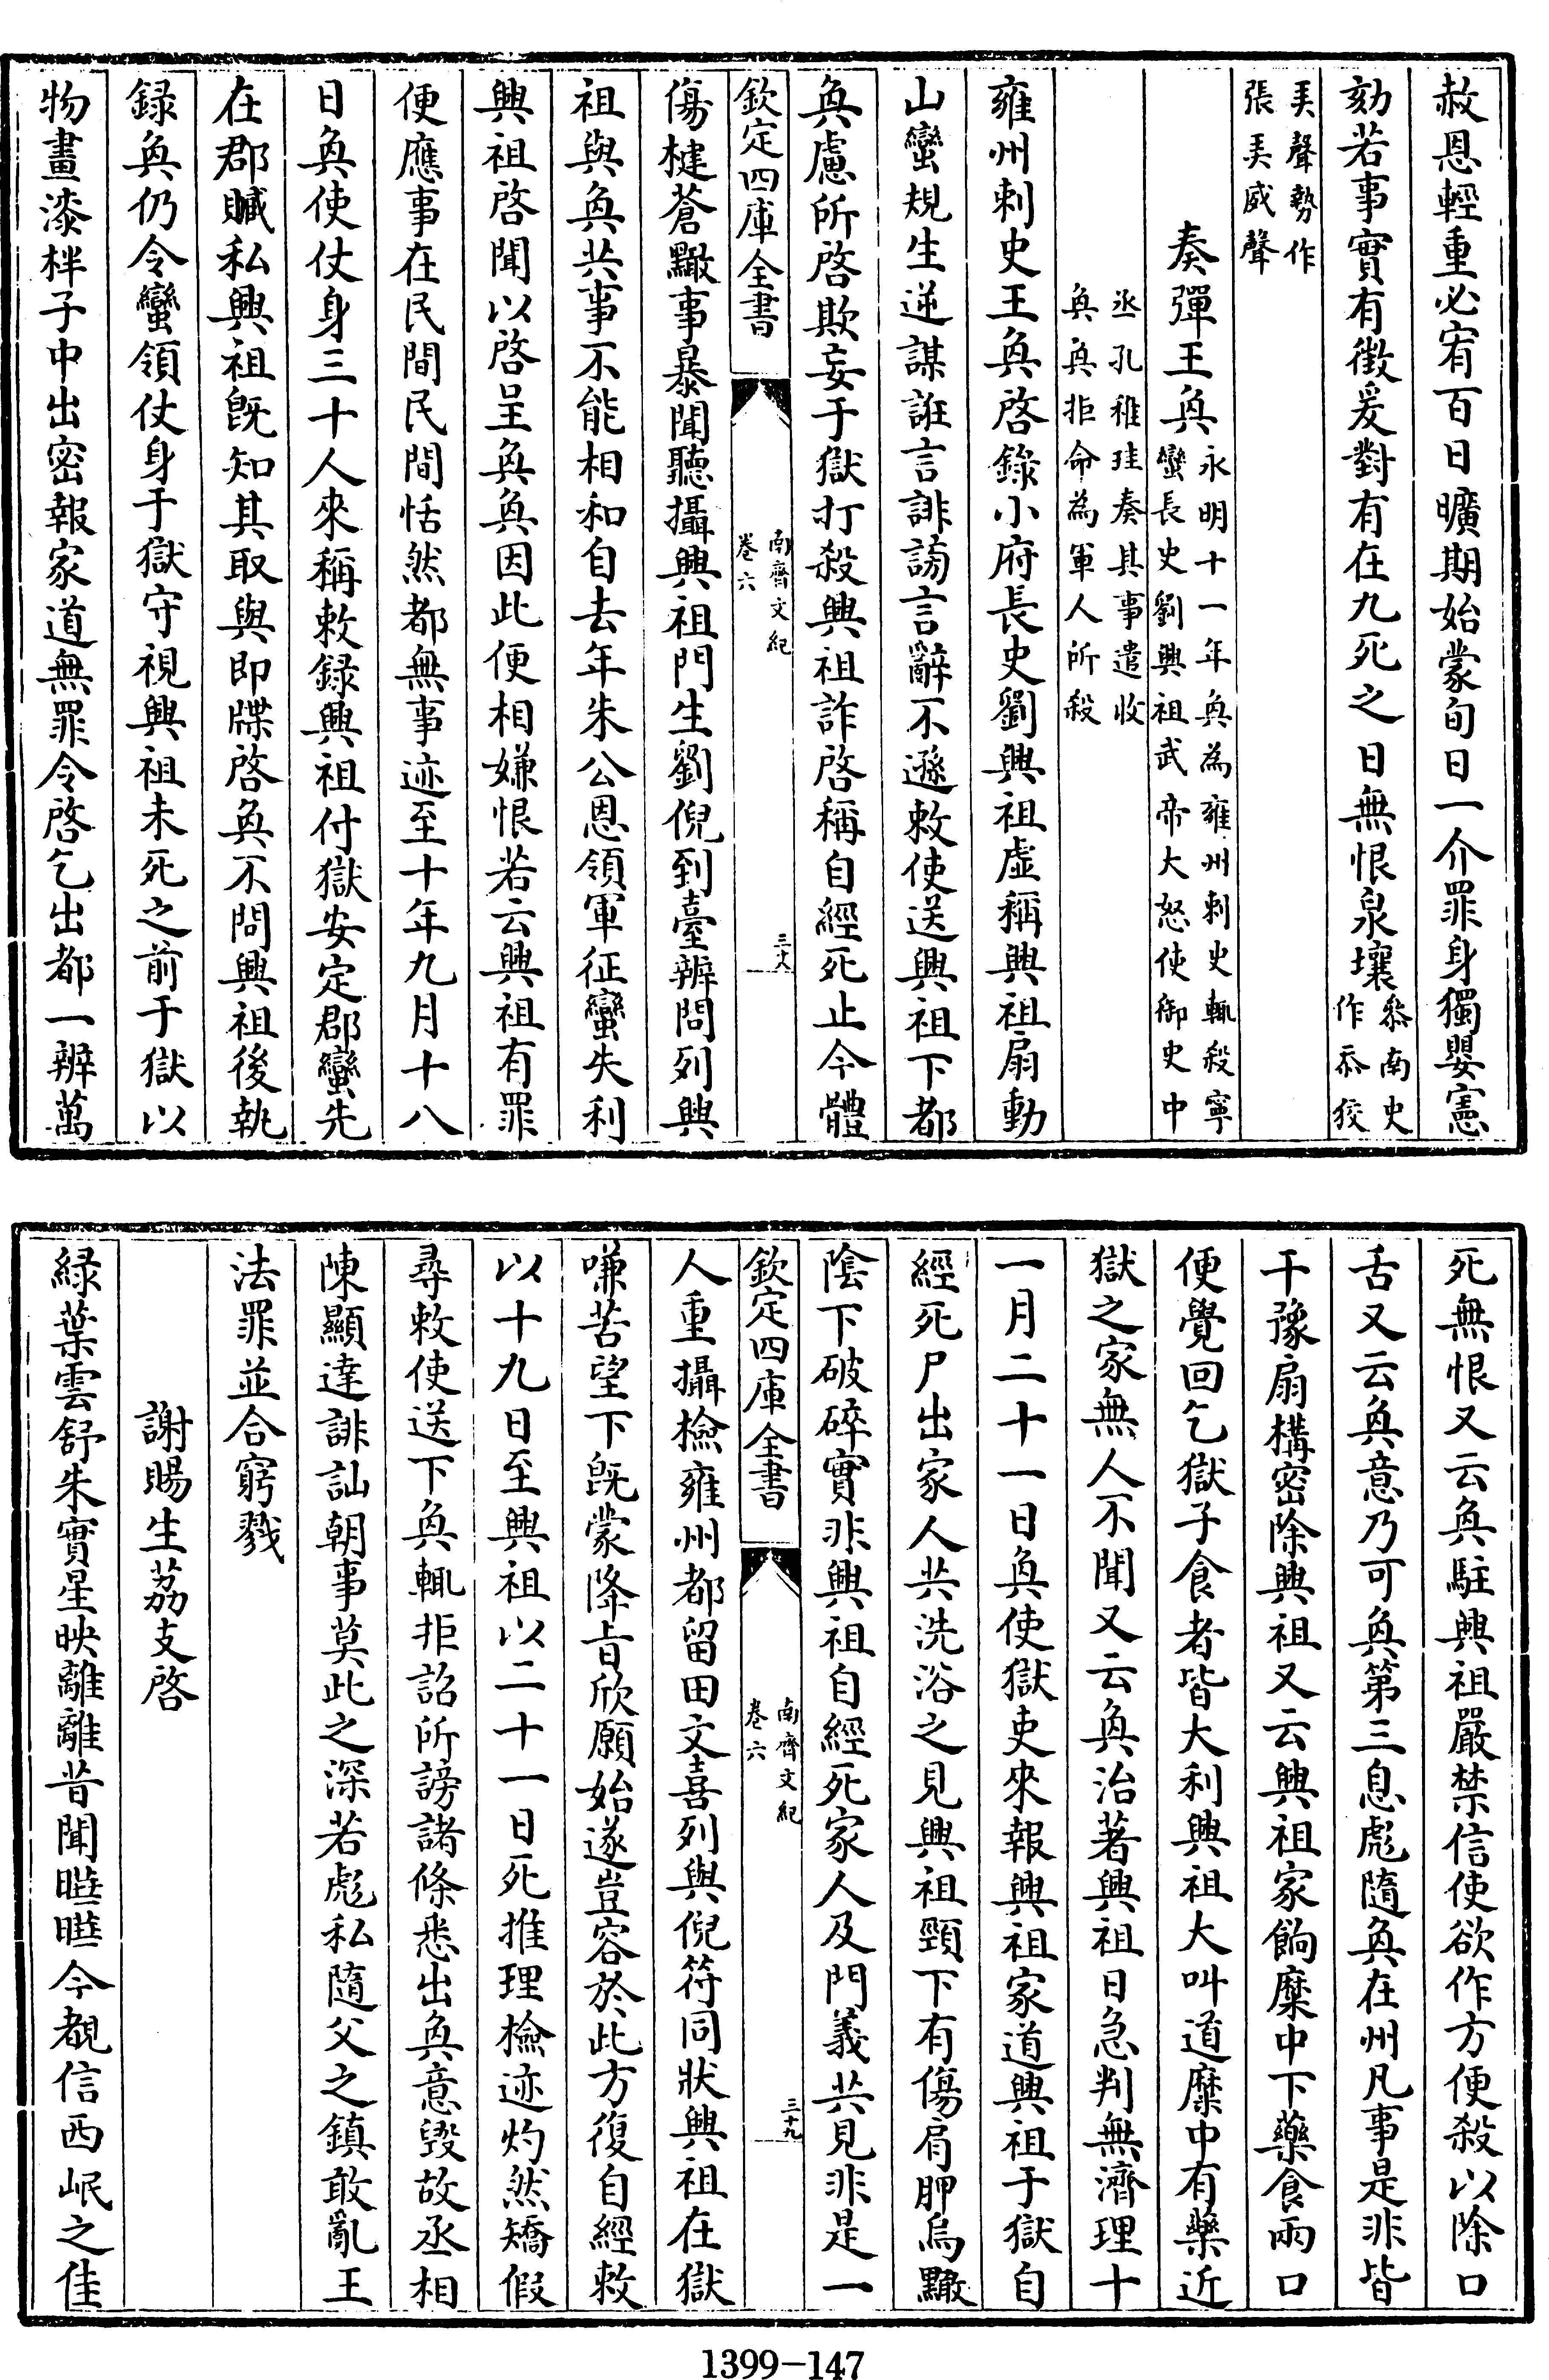 赦恩輕重必宥百日曠期始蒙旬日一介罪身獨嬰憲
劾若事實有徵爰對有在九死之日無恨泉壤叅南史作忝狡
𢎞聲勢作張𢎞威聲
奏彈王奐永明十一年奐為雍州刺史輒殺寧蠻長史劉興祖武帝大怒使御史中
丞孔稚珪奏其事遣收奐奐拒命為軍人所殺
雍州刺史王奐啓錄小府長史劉興祖虛稱興祖扇動
山蠻規生逆謀誑言誹謗言辭不遜敕使送興祖下都
奐慮所啓欺妄于獄打殺興祖詐啓稱自經死止今體
欽定四庫全書 南齊文紀 卷六 三十八
傷楗蒼黵事暴聞聽攝興祖門生劉倪到臺辨問列興
祖與奐共事不能相和自去年朱公恩領軍征蠻失利
興祖啓聞以啓呈奐奐因此便相嫌恨若云興祖有罪
便應事在民間民間恬然都無事迹至十年九月十八
日奐使仗身三十人來稱敕録興祖付獄安定郡蠻先
在郡贓私興祖既知其取與即牒啓奐不問興祖後執
録奐仍令蠻領仗身于獄守視興祖未死之前于獄以
物畫漆柈子中出密報家道無罪令啓乞出都一辨萬
死無恨又云奐駐興祖嚴禁信使欲作方便殺以除口
舌又云奐意乃可奐第三息彪隨奐在州凡事是非皆
干豫扇構密除興祖又云興祖家餉糜中下藥食兩口
便覺回乞獄子食者皆大利興祖大叫道糜中有藥近
獄之家無人不聞又云奐治著興祖日急判無濟理十
一月二十一日奐使獄吏來報興祖家道興祖于獄自
經死尸出家人共洗浴之見興祖頸下有傷肩胛烏黵
陰下破碎實非興祖自經死家人及門義共見非是一
欽定四庫全書 南齊文紀 卷六 三十九
人重攝檢雍州都留田文喜列與倪符同狀興祖在獄
嗛苦望下既蒙降旨欣願始遂豈容於此方復自經敕
以十九日至興祖以二十一日死推理檢迹灼然矯假
尋敕使送下奐輒拒詔所謗諸條悉出奐意毀故丞相
陳顯達誹訕朝事莫此之深若彪私隨父之鎮敢亂王
法罪並合窮戮
謝賜生荔支啓
緑葉雲舒朱實星映離離昔聞曄曄今覩信西岷之佳
1399-147